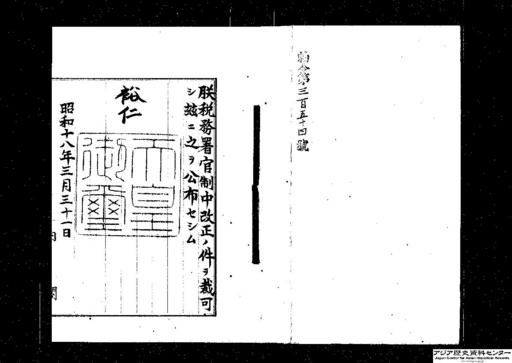 勅令第三百五十四號
朕税務署官制中改正ノ件ヲ裁可
シ茲ニ之ヲ公布セシム
裕仁
天皇御璽
昭和十八年三月三十一日
アジア歴史資料センター
Japan Center for Asian Historical Records